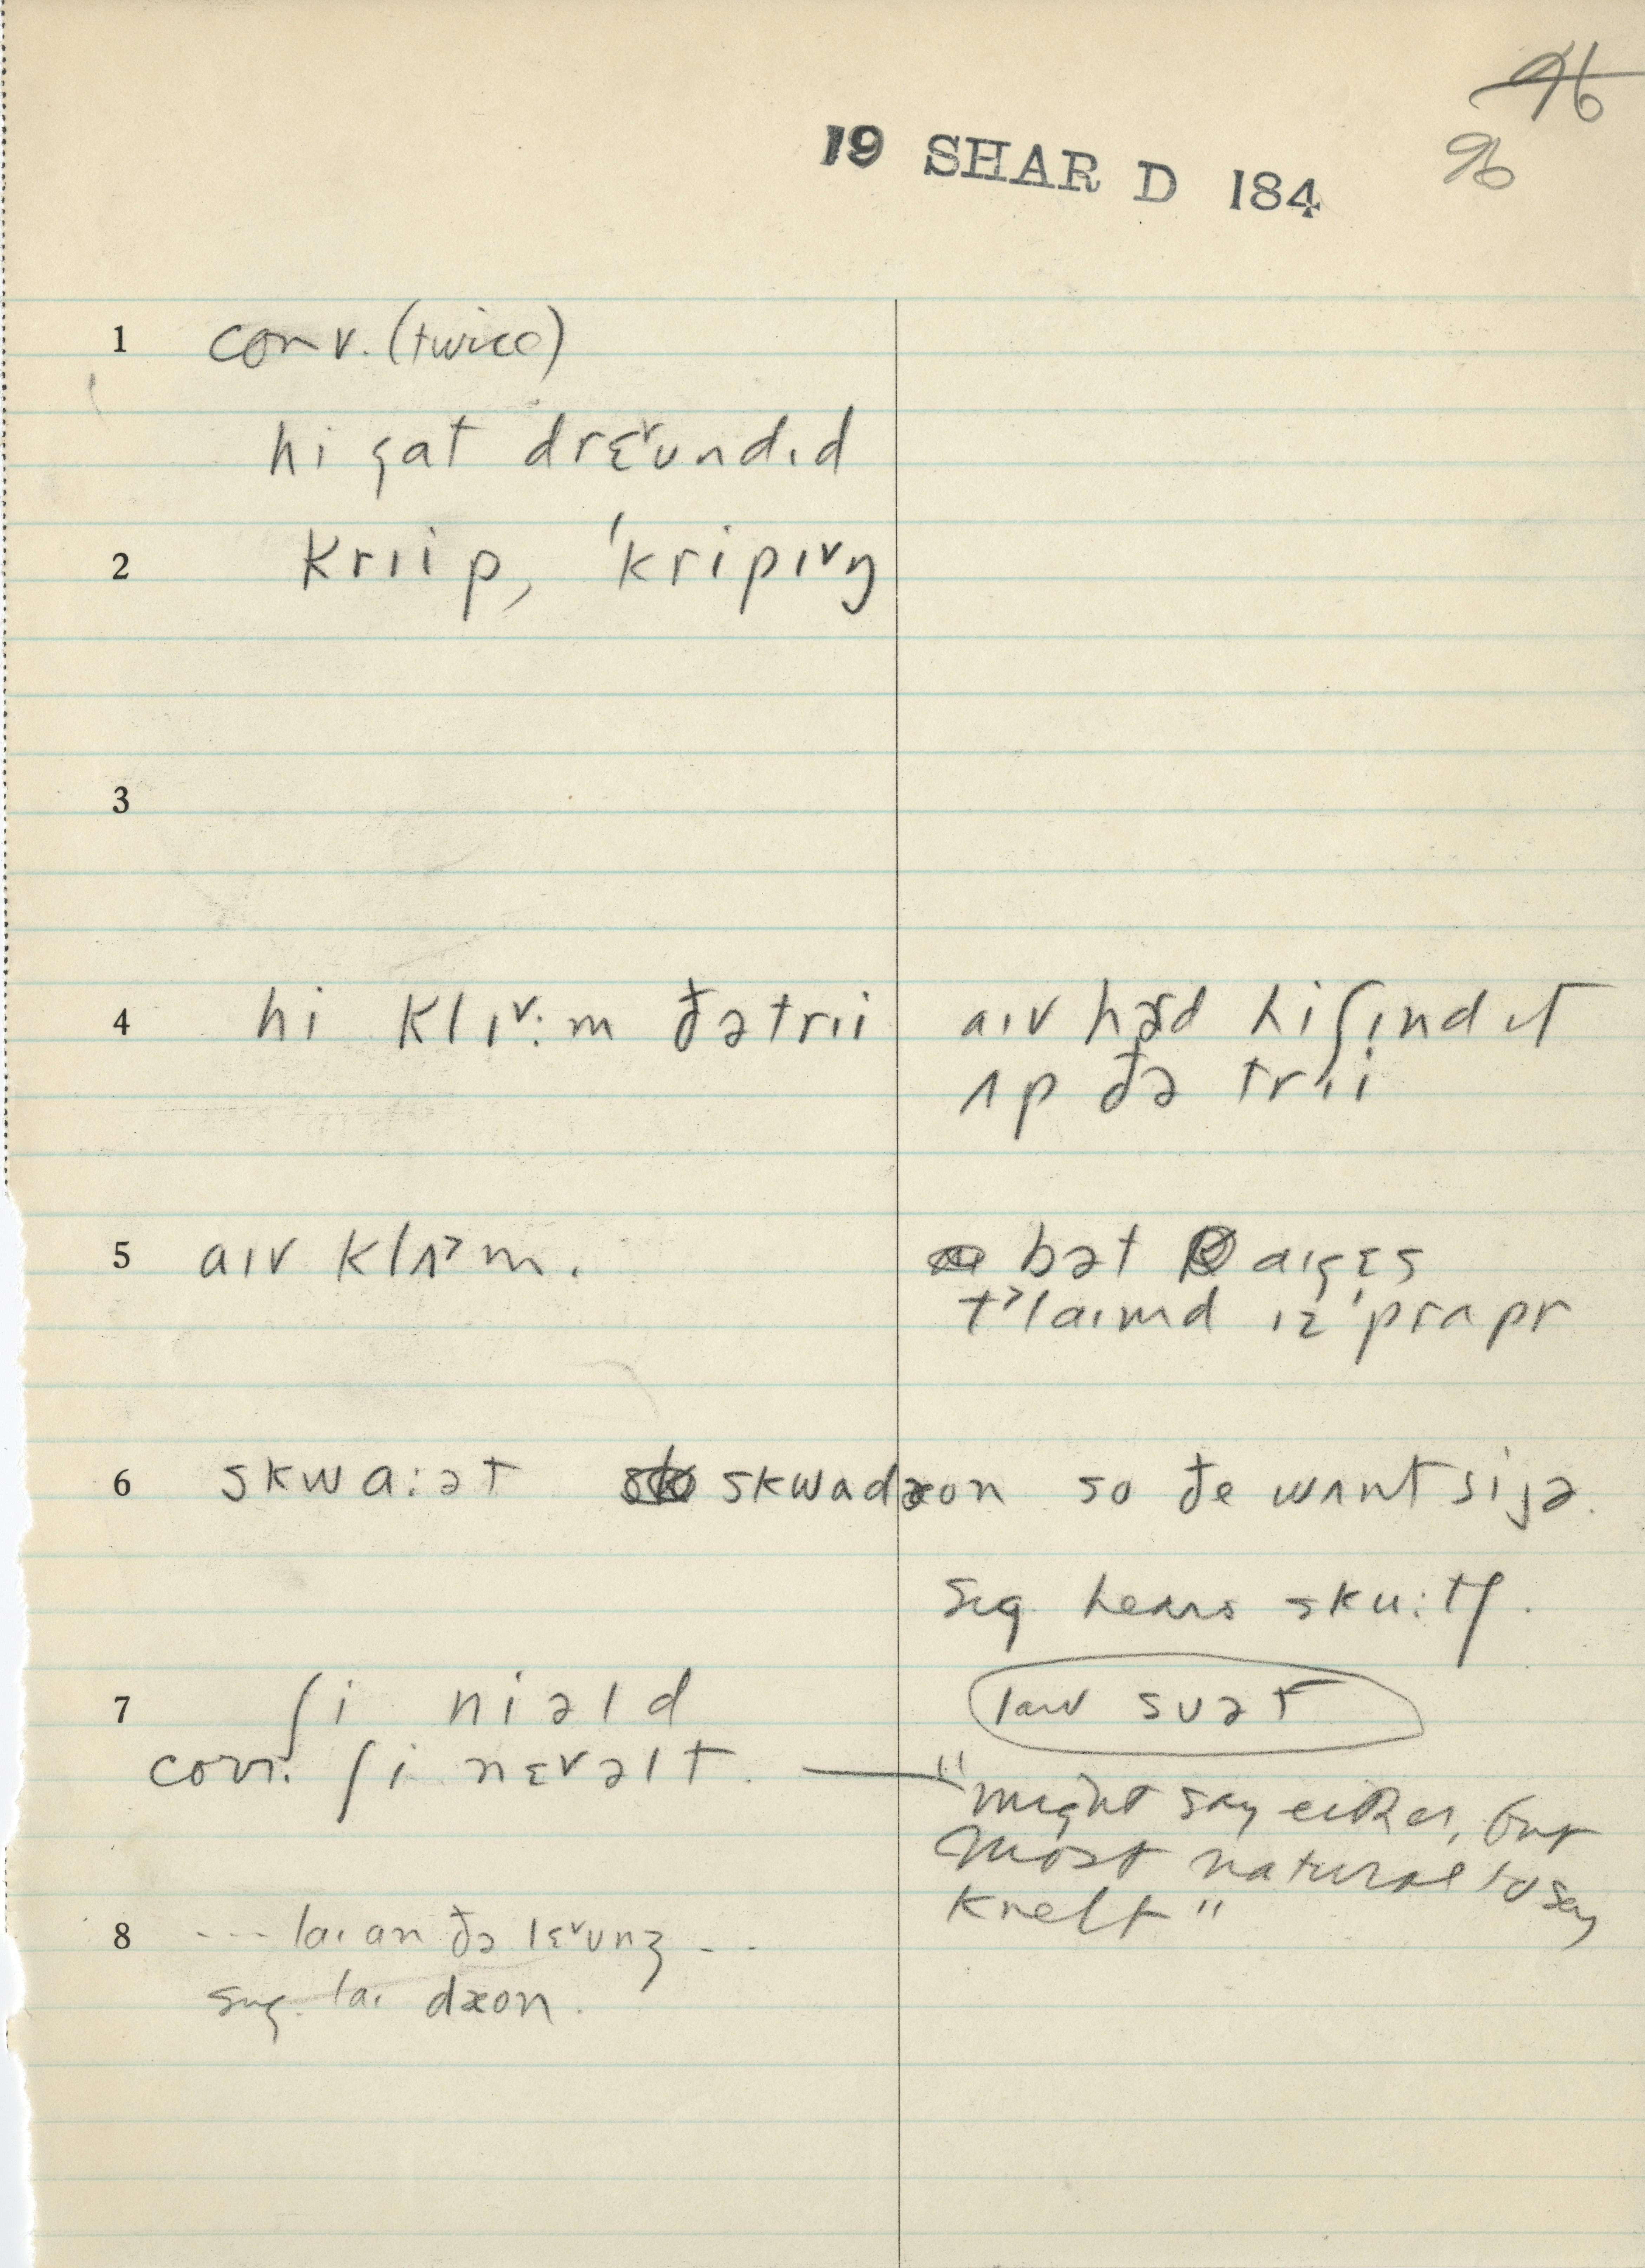 96
19 SHAR D 184
96
1 conv. (twice)
hi gat drɛ˅ʊndɪd
2 krɪip, ˈkripɪ˅ŋ
3
4 hi klɪ˅:m ðə trɪi
aɪv hæd hi ʃɪnd ɪt
ʌp ðə trɪi
5 aɪv klʌ˃m.
bət aɪ gɛs
t˃laɪmd ɪz ˈprapr
6 skwa:ət skwadæon so ðe wʌnt si jə.
sug. hears sku:tʃ.
7 ʃi niəld
law suət
conv. ʃi nɛ˅əlt. —— "might say either, but
most natural to say
knelt"
8 --- laɪ an ðə lɛ˅ʊnʒ ---
sug. laɪ dæon.